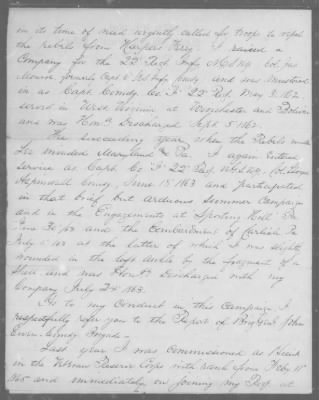 in its time of need urgently called for troops to repel
the rebels from Harpers Ferry. I raised a
Company for the 22d Regt Inf. N.G.S.N.Y. Col. Jas
Monroe formerly Capt
in as Capt Comdg Co F 22d Regt May 3, 1862.
served in West Virginia at Winchester and Bolivar
and was Honbly Discharged Sept. 5 1862.
The succeeding year when the Rebels under
Lee invaded Maryland & Pa. I again entered
service as Capt. Co F 22d Regt Col. Lloyd
Aspinwall Comdg June 18 1863 and participated
in that brief but arduous Summer Campaign
and in the Engagements at Sporting Hill Pa
June 30/63 and the Bombardment of Carlisle Pa
July 1st/63 at the latter of which I was slightly
wounded in the left Ankle by the fragment of a
Shell and was Honbly Discharged with my
Company July 24 1863.
As to my Conduct in this Campaign I
respectfully refer you to the Report of Brig Genl John
Ewen Comdg Brigade—
Last year I was commissioned as 
in the Veteran Reserve Corps with rank from Feby 11
1865 and immediately on joining my Regt at